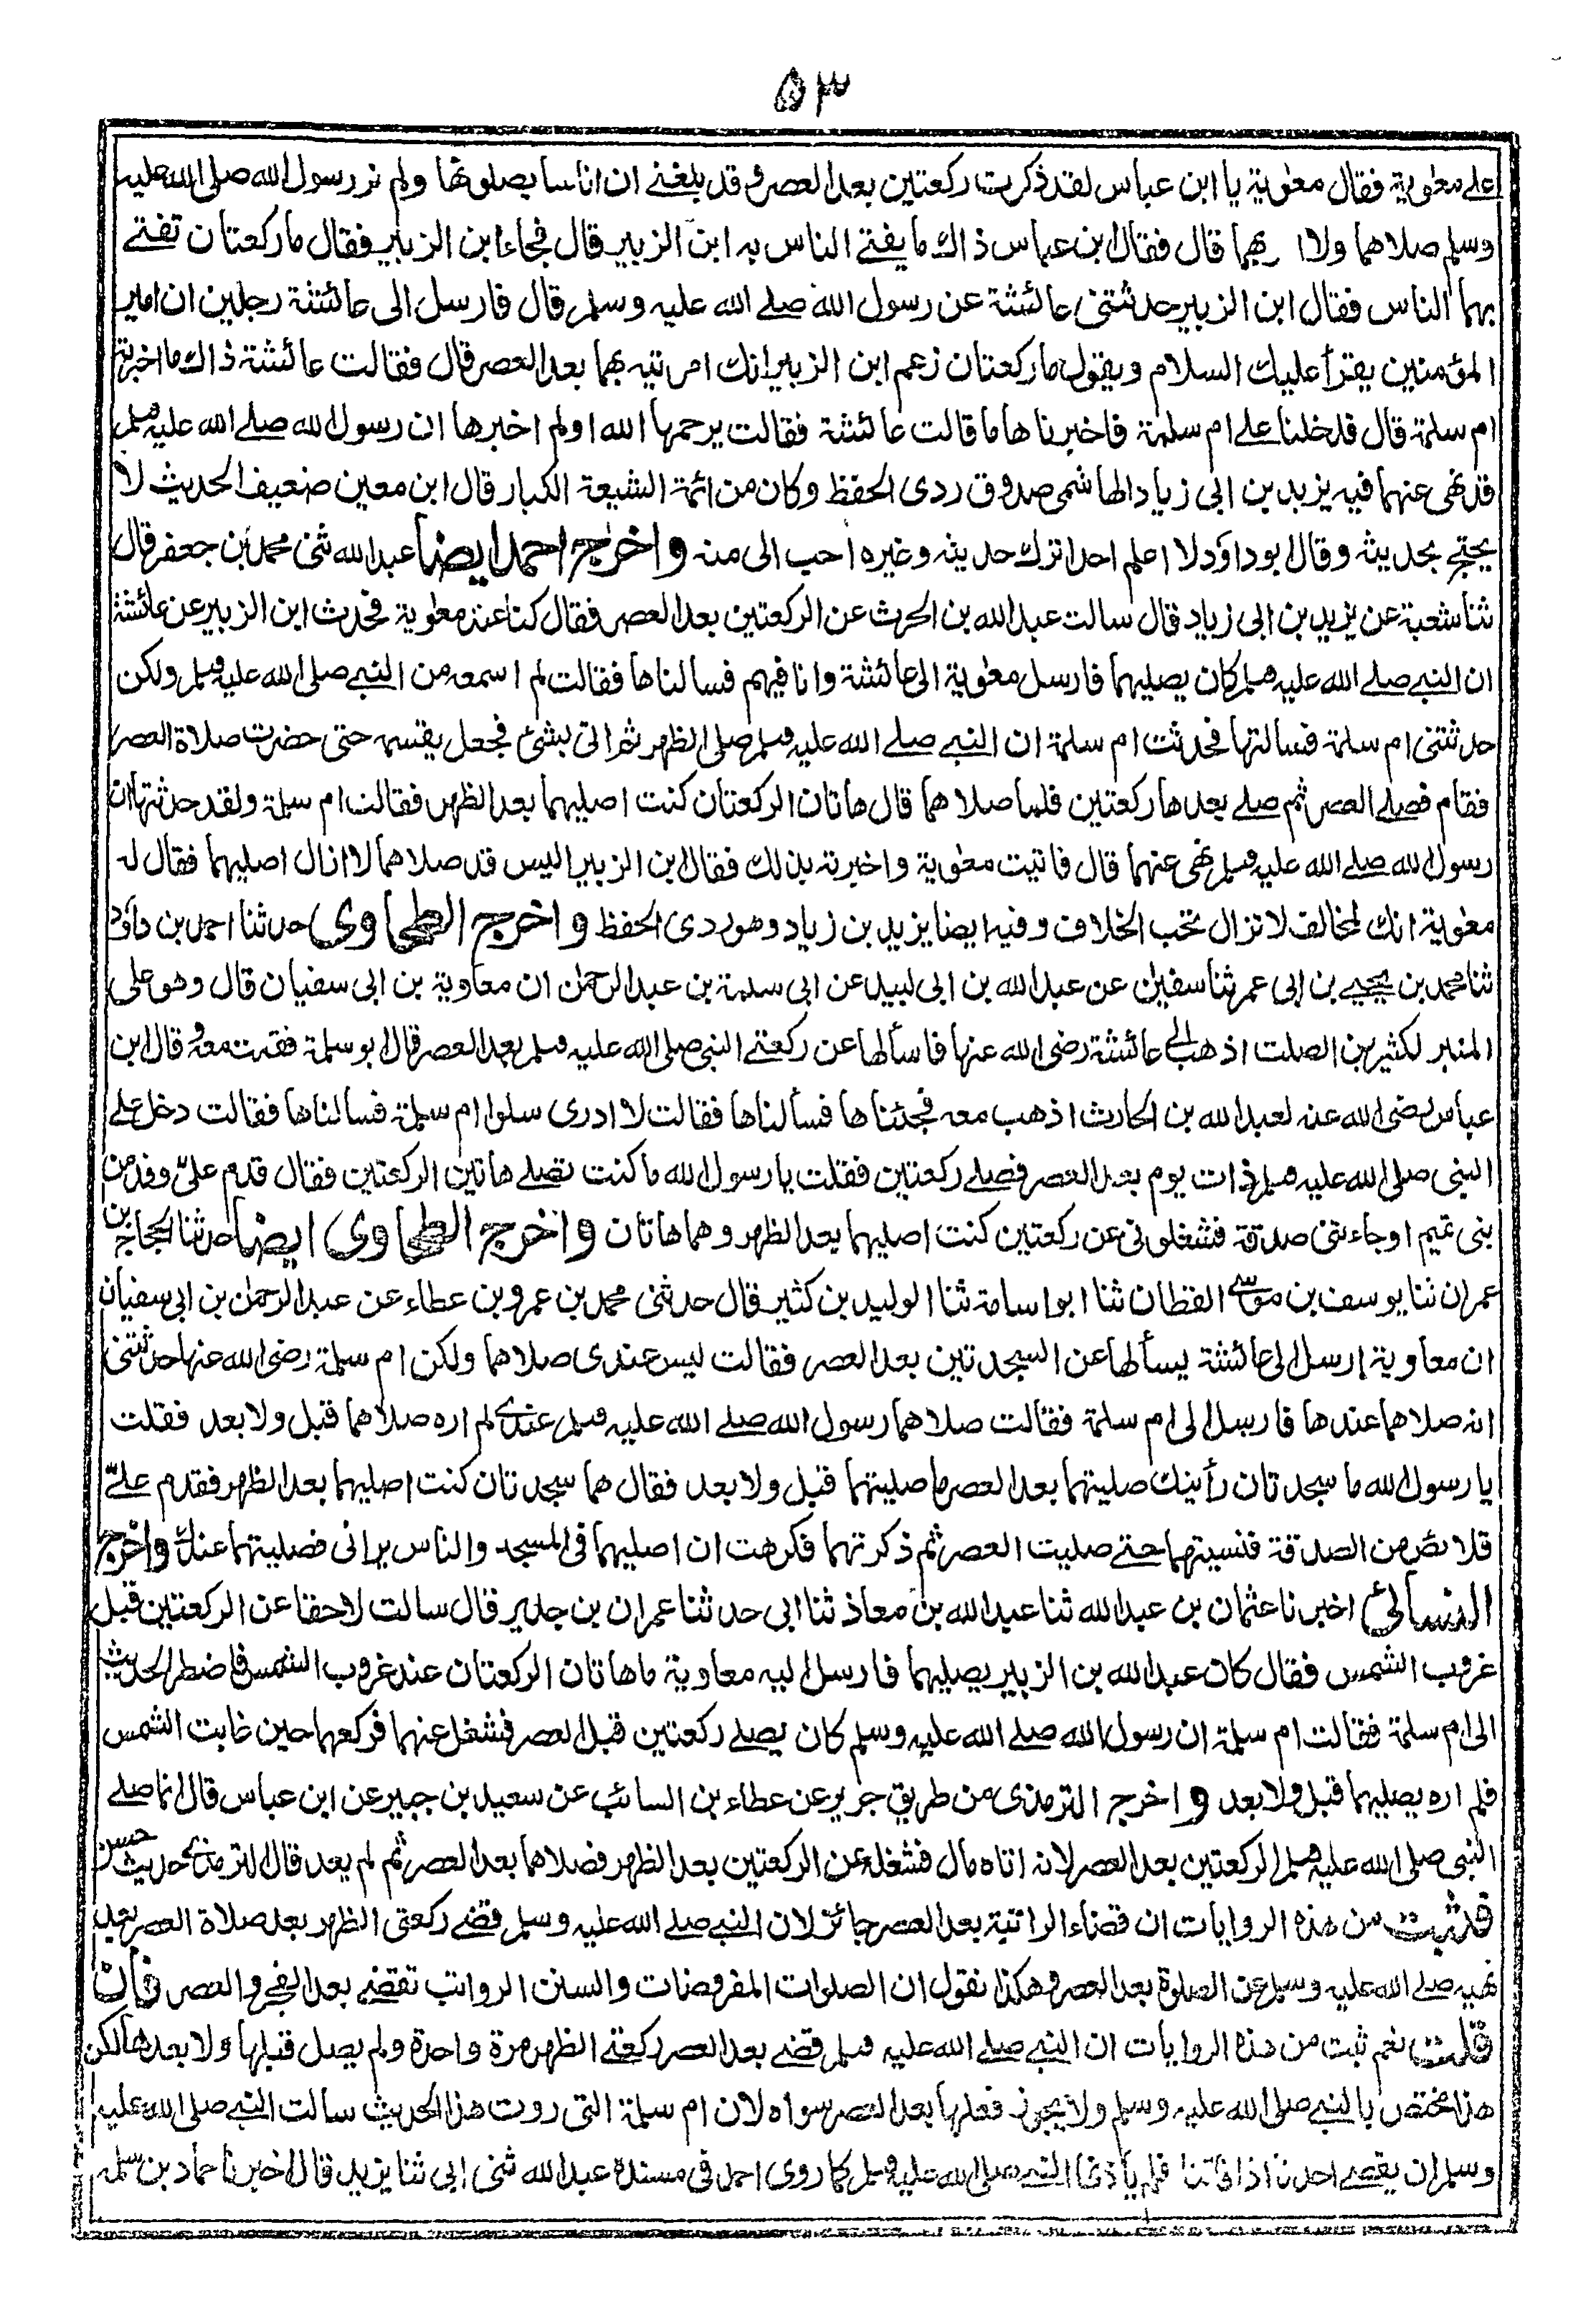 ٥٣
على معوية فقال معوية يا ابن عباس لقد ذكرت ركعتين بعد العصر وقد بلغنے ان اناسا يصلونها ولم نر رسول الله صلى الله عليه
وسلم صلاهما ولا ا بهما قال فقال ابن عباس ذاك ما يفتے الناس به ابن الزبير قال فجاء ابن الزبير فقال ما ركعتان تفتے
بهما الناس فقال ابن الزبير حدثتنى عائشة عن رسول الله صلے الله عليه وسلم قال فارسل الى عائشة رجلين ان امير
المؤمنين يقرأ عليك السلام ويقول ما ركعتان زعم ابن الزبير انك امرتيه بهما بعد العصر قال فقالت عائشة ذاك ما اخبرته
ام سلمة قال فدخلنا علے ام سلمة فاخبرناها ما قالت عائشة فقالت يرحمها الله اولم اخبرها ان رسول الله صلے الله عليه وسلم
قد نهى عنهما فيه يزيد بن ابى زياد الهاشمى صدوق ردى الحفظ وكان من ائمة الشيعة الكبار قال ابن معين ضعيف الحديث لا
يحتج بحديثه وقال ابو داؤد لا اعلم احدا ترك حديثه وغيره احب الى منه واخرج احمد ايضا عبد الله ثنى محمد بن جعفر قال
ثنا شعبة عن يزيد بن ابى زياد قال سالت عبد الله بن الحرث عن الركعتين بعد العصر فقال كنا عند معوية فحدث ابن الزبير عن عائشة
ان النبے صلے الله عليه وسلم كان يصليهما فارسل معوية الى عائشة وانا فيهم فسالناها فقالت لم اسمعه من النبے صلى الله عليه وسلم ولكن
حدثتنى ام سلمة فسالتها فحدثت ام سلمة ان النبے صلے الله عليه وسلم صلى الظهر ثم اتى بشئ فجعل يقسمه حتى حضرت صلاة العصر
فقام فصلے العصر ثم صلے بعدها ركعتين فلما صلاهما قال هاتان الركعتان كنت اصليهما بعد الظهر فقالت ام سلمة ولقد حدثتها ان
رسول الله صلے الله عليه وسلم نهى عنهما قال فاتيت معوية واخبرته بذلك فقال ابن الزبير اليس قد صلاهما لا ازال اصليهما فقال له
معوية انك لمخالف لا تزال تحب الخلاف وفيه ايضا يزيد بن زياد وهو ردى الحفظ واخرج الطحاوى حدثنا احمد بن داؤد
ثنا محمد بن يحيے بن ابى عمر ثنا سفين عن عبد الله بن ابى لبيد عن ابى سلمة بن عبد الرحمن ان معاوية بن ابى سفيان قال وهو على
المنبر لكثير بن الصلت اذهب الى عائشة رضى الله عنها فاسألها عن ركعتے النبى صلى الله عليه وسلم بعد العصر قال ابو سلمة فقمت معه وقال ابن
عباس رضى الله عنه لعبد الله بن الحارث اذهب معه فجئناها فسألناها فقالت لا ادرى سلوا ام سلمة فسالناها فقالت دخل علے
النبى صلى الله عليه وسلم ذات يوم بعد العصر فصلے ركعتين فقلت يا رسول الله ما كنت تصلے هاتين الركعتين فقال قدم علىّ وفد من
بنى تميم او جاءتنى صدقة فشغلونى عن ركعتين كنت اصليهما بعد الظهر وهما هاتان واخرج الطحاوى ايضا حدثنا الحجاج بن
عمران ثنا يوسف بن موسى القطان ثنا ابو اسامة ثنا الوليد بن كثير قال حدثنى محمد بن عمرو بن عطاء عن عبد الرحمن بن ابى سفيان
ان معاوية ارسل الى عائشة يسألها عن السجدتين بعد العصر فقالت ليس عندى صلاهما ولكن ام سلمة رضى الله عنها حدثتنى
انه صلاهما عندها فارسل الى ام سلمة فقالت صلاهما رسول الله صلے الله عليه وسلم عندے لم اره صلاهما قبل ولا بعد فقلت
يا رسول الله ما سجدتان رأيتك صليتهما بعد العصر ما صليتهما قبل ولا بعد فقال هما سجدتان كنت اصليهما بعد الظهر فقدم علىّ
قلائص من الصدقة فنسيتهما حتے صليت العصر ثم ذكرتهما فكرهت ان اصليهما فى المسجد والناس يرانى فصليتهما عندك واخرج
النسائى اخبرنا عثمان بن عبد الله ثنا عبد الله بن معاذ ثنا ابى حدثنا عمران بن حدير قال سالت لاحقا عن الركعتين قبل
غروب الشمس فقال كان عبد الله بن الزبير يصليهما فارسل اليه معاوية ما هاتان الركعتان عند غروب الشمس فاضطر الحديث
الى ام سلمة فقالت ام سلمة ان رسول الله صلے الله عليه وسلم كان يصلے ركعتين قبل العصر فشغل عنهما فركعهما حين غابت الشمس
فلم اره يصليهما قبل ولا بعد واخرج الترمذى من طريق جرير عن عطاء بن السائب عن سعيد بن جبير عن ابن عباس قال انما صلے
النبى صلى الله عليه وسلم الركعتين بعد العصر لانه اتاه مال فشغله عن الركعتين بعد الظهر فصلاهما بعد العصر ثم لم يعد قال الترمذى حديث حسن
قد ثبت من هذه الروايات ان قضاء الراتبة بعد العصر جائز لان النبے صلے الله عليه وسلم قضے ركعتى الظهر بعد صلاة العصر بعد
نهيه صلے الله عليه وسلم عن الصلوة بعد العصر وهكذا نقول ان الصلوات المفروضات والسنن الرواتب تقضے بعد الفجر والعصر فان
قلت نعم ثبت من هذه الروايات ان النبے صلے الله عليه وسلم قضے بعد العصر ركعتے الظهر مرة واحدة ولم يصل قبلها ولا بعدها لكن
هذا مختص بالنبے صلى الله عليه وسلم ولا يجوز فعلها بعد العصر سواه لان ام سلمة التى روت هذا الحديث سالت النبے صلى الله عليه
وسلم ان يقضے احدنا اذا فاتتا فلم يأذن النبے صلى الله عليه وسلم كما روى احمد فى مسنده عبد الله ثنى ابى ثنا يزيد قال اخبرنا حماد بن سلمة